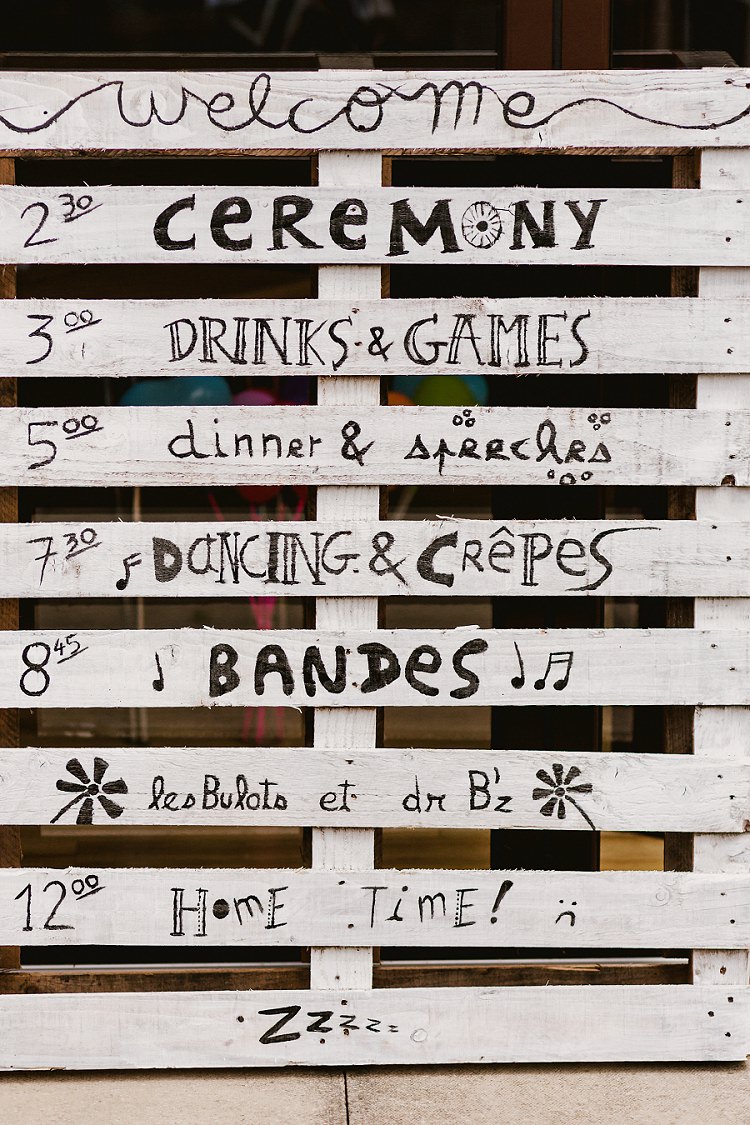 welcome
2 30 CEREMONY
3 00 DRINKS & GAMES
5 00 dinner & speeches
7 30 DANCING & CRÊPES
8 45 BANDES
les Bulots et dr B'z
12 00 HOME TIME! :(
Zzzzz